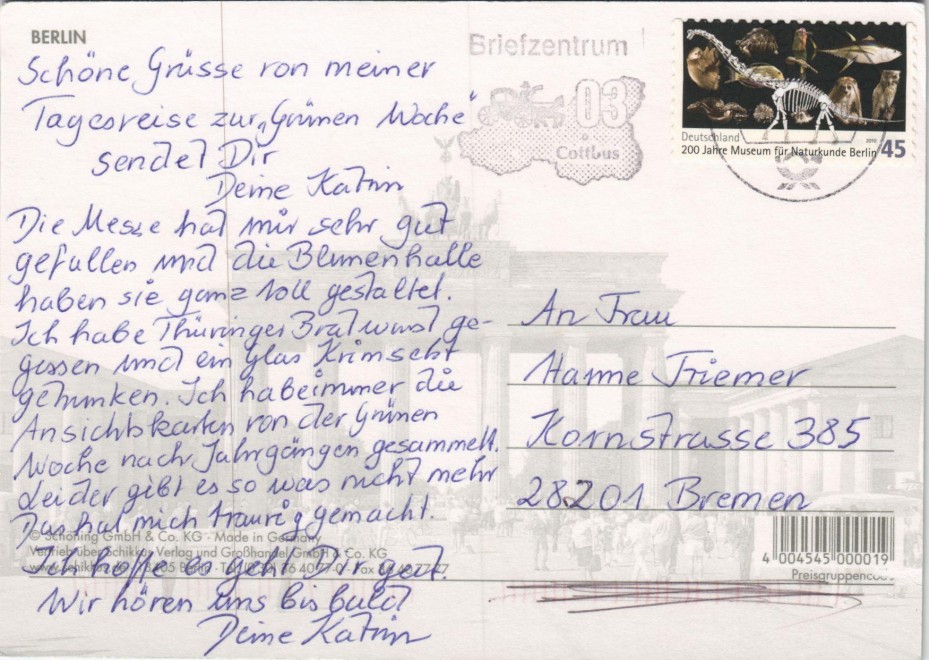 BERLIN
Schöne Grüsse von meiner
Tagesreise zur „Grünen Woche"
sendet Dir
Deine Katrin
Die Messe hat mir sehr gut
gefallen und die Blumenhalle
haben sie ganz toll gestaltet.
Ich habe Thüringer Bratwurst ge-
gessen und ein Glas Krimsekt
getrunken. Ich habe immer die
Ansichtskarten von der Grünen
Woche nach Jahrgängen gesammelt.
Leider gibt es so was nicht mehr
Das hat mich traurig gemacht.
Ich hoffe es geht Dir gut.
Wir hören uns bis bald
Deine Katrin
© Schöning GmbH & Co. KG · Made in Germany
Vertrieb über Schikkus Verlag und Großhandel GmbH & Co. KG
Briefzentrum
03
Cottbus
Deutschland
2010
200 Jahre Museum für Naturkunde Berlin 45
An Frau
Hanne Triemer
Kornstrasse 385
28201 Bremen
4 004545 000019